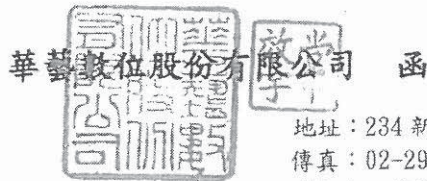 華藝數位股份有限公司 函
地址：234 新
傳真：02-29